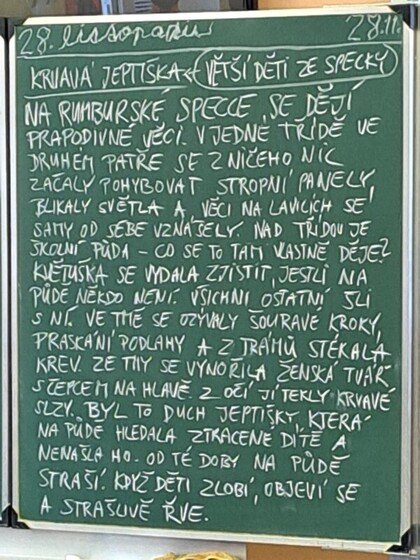 28. listopadu 28.11.
KRVAVÁ JEPTIŠKA ← VĚTŠÍ DĚTI ZE SPECKY
NA RUMBURSKÉ SPECCE SE DĚJÍ
PRAPODIVNÉ VĚCI. V JEDNÉ TŘÍDĚ VE
DRUHÉM PATŘE SE Z NIČEHO NIC
ZAČALY POHYBOVAT STROPNÍ PANELY,
BLIKALY SVĚTLA A VĚCI NA LAVICÍCH SE
SAMY OD SEBE VZNÁŠELY. NAD TŘÍDOU JE
ŠKOLNÍ PŮDA - CO SE TO TAM VLASTNĚ DĚJE?
KVĚTUŠKA SE VYDALA ZJISTIT, JESTLI NA
PŮDĚ NĚKDO NENÍ. VŠICHNI OSTATNÍ ŠLI
S NÍ. VE TMĚ SE OZÝVALY ŠOURAVÉ KROKY,
PRASKÁNÍ PODLAHY A Z TRÁMŮ STÉKALA
KREV. ZE TMY SE VYNOŘILA ŽENSKÁ TVÁŘ
S ČEPCEM NA HLAVĚ. Z OČÍ JÍ TEKLY KRVAVÉ
SLZY. BYL TO DUCH JEPTIŠKY, KTERÁ
NA PŮDĚ HLEDALA ZTRACENÉ DÍTĚ A
NENAŠLA HO. OD TÉ DOBY NA PŮDĚ
STRAŠÍ. KDYŽ DĚTI ZLOBÍ, OBJEVÍ SE
A STRAŠLIVĚ ŘVE.